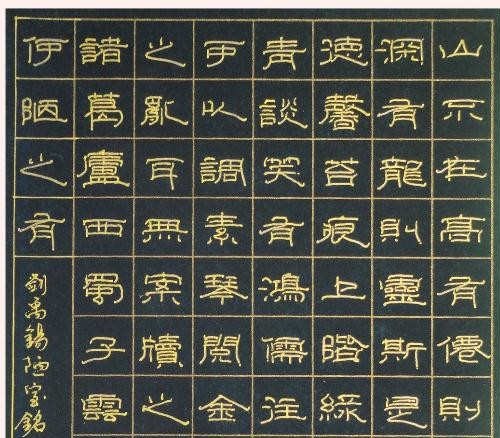 山不在高有僊則
深有龍則靈斯是
德馨苔痕上階綠
青談笑有鴻儒往
可以調素琴閱金
之亂耳無案牘之
諸葛廬西蜀子雲
何陋之有
劉禹錫陋室銘